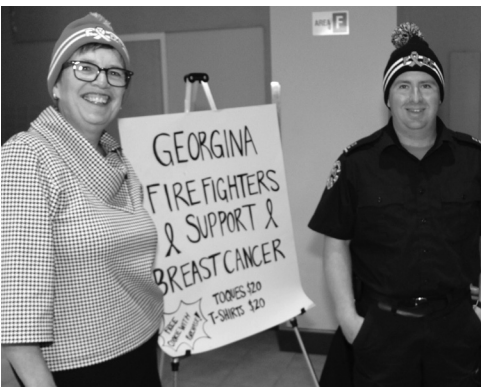 AREA F
GEORGINA
FIREFIGHTERS
SUPPORT
BREAST CANCER
TOQUES $20
T-SHIRTS $20
FREE
WITH